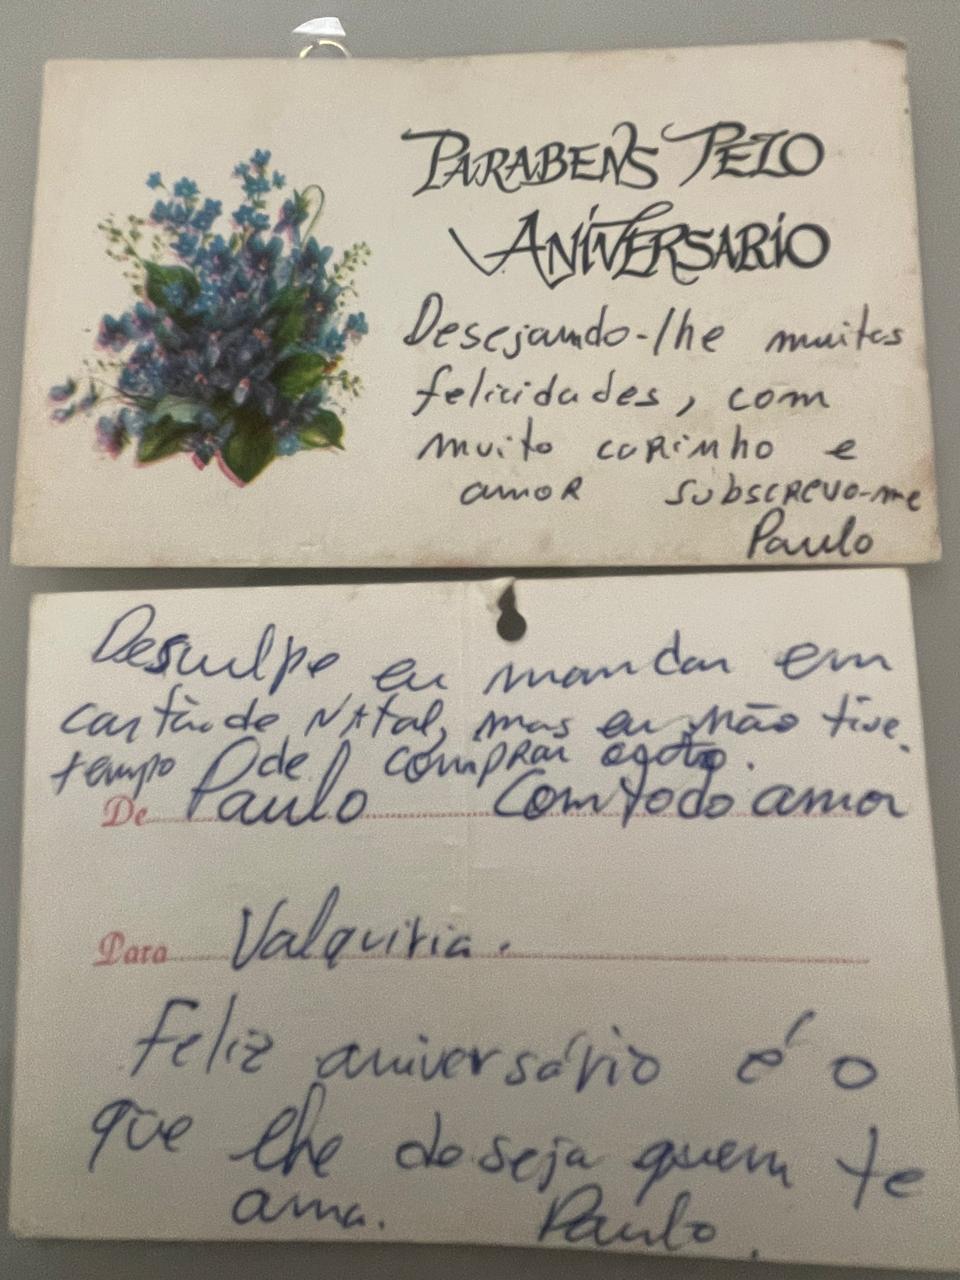 PARABENS PELO
ANIVERSARIO
Desejando-lhe muitas
felicidades, com
muito carinho e
amor subscrevo-me
Paulo
Desculpe eu mandar em
cartão de NATAL, mas eu não tive.
tempo de comprar outro.
De Paulo Com todo amor
Para Valquiria.
Feliz aniversário é o
que lhe deseja quem te
ama. Paulo.